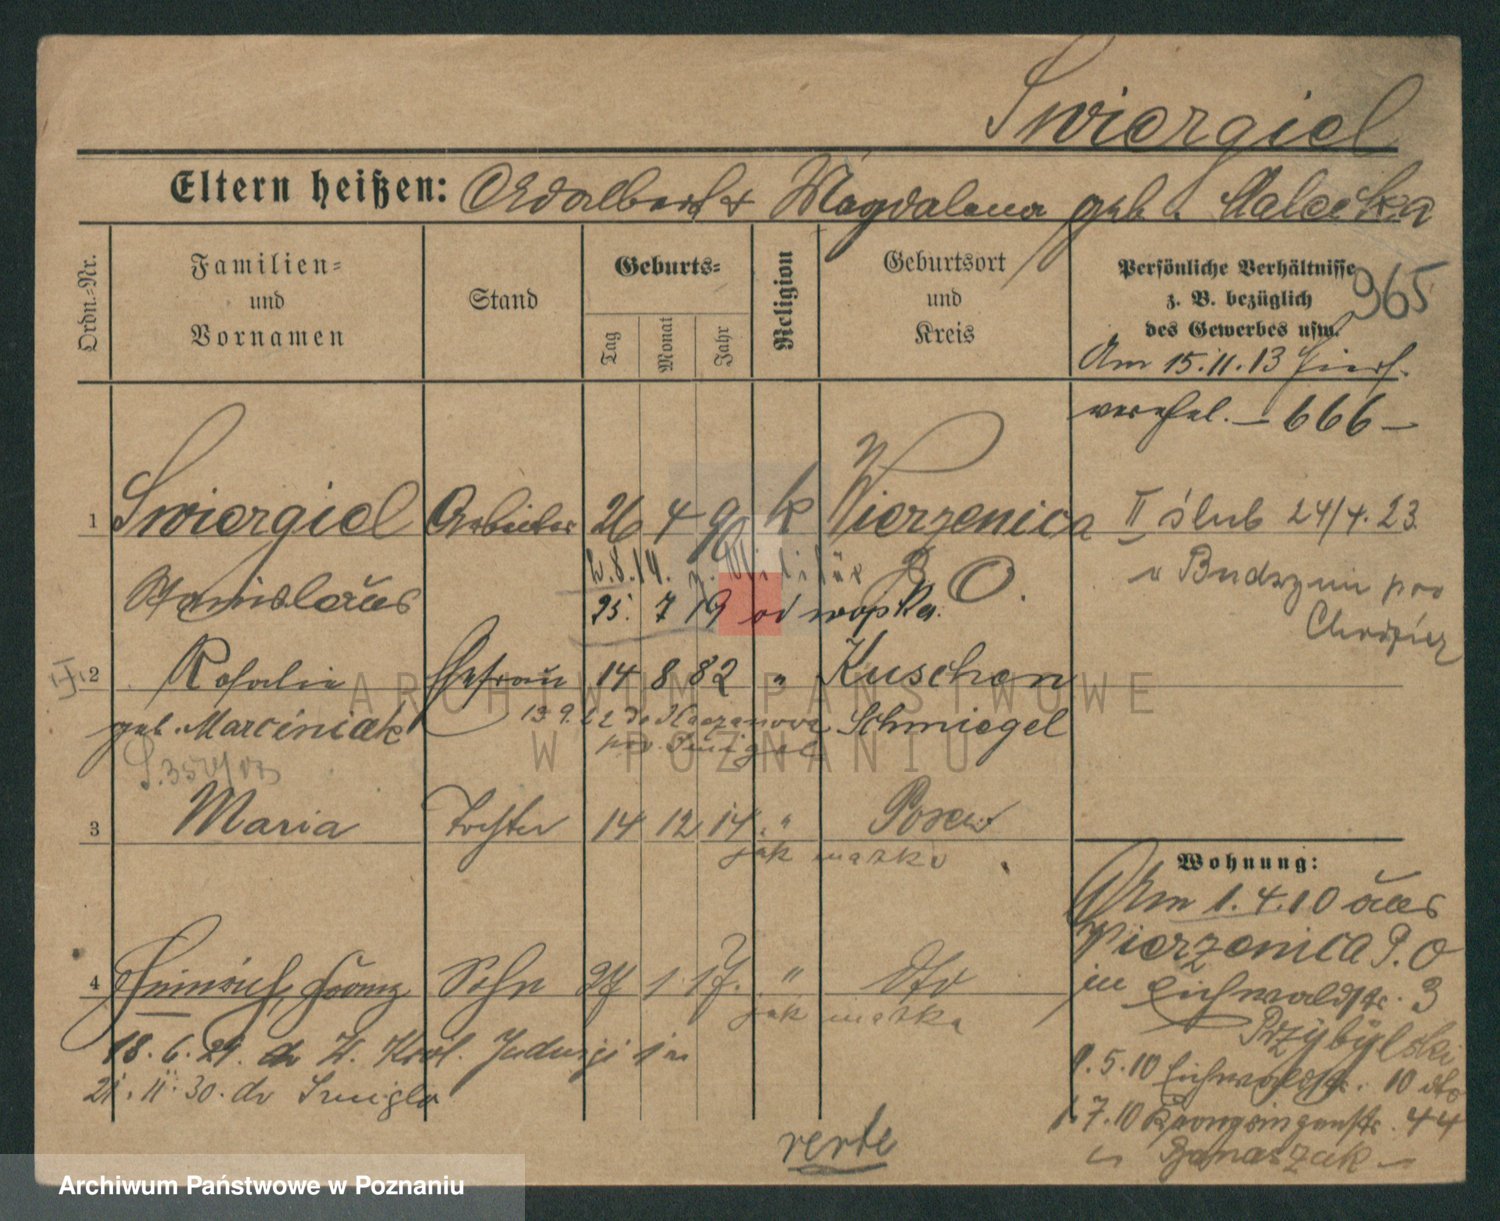 Swiergiel
Eltern heißen: Adalbert & Magdalena geb. Malecka
Ordn.=Nr.
Familien= und Vornamen
Stand
Geburts=
Tag
Monat
Jahr
Religion
Geburtsort und Kreis
Persönliche Verhältnisse
z. B. bezüglich
des Gewerbes usw.
965
Am 15.11.13 hier
verehel. – 666 –
1 Swiergiel Arbeiter 26 4 90 k Wierzenica
II ślub 24/4. 23.
Stanislaus
2.8.14. z. Militär
P. O.
25. 7 19 od wojska.
w Budszyn pow
2 Rosalie Ehefrau 14 8 82 " Kuschen
geb. Marciniak
13 9. 22 do
Schmiegel
pow. Śmigiel
3 Maria Tochter 14 12 14 " Posen
jak matka
Wohnung:
Am 1.4.10 aus
Wierzenica P. O
in Eichwaldstr. 3
Przybylski
4 Heinrich, Franz Sohn 27 1 17. " dto
jak matka
18. 6. 29. do
1.5.10 Eichwaldstr. 10 dto
21. 11. 30. do Śmigla
1.7.10 44
Banaszak
verte
ARCHIWUM PAŃSTWOWE
W POZNANIU
Archiwum Państwowe w Poznaniu